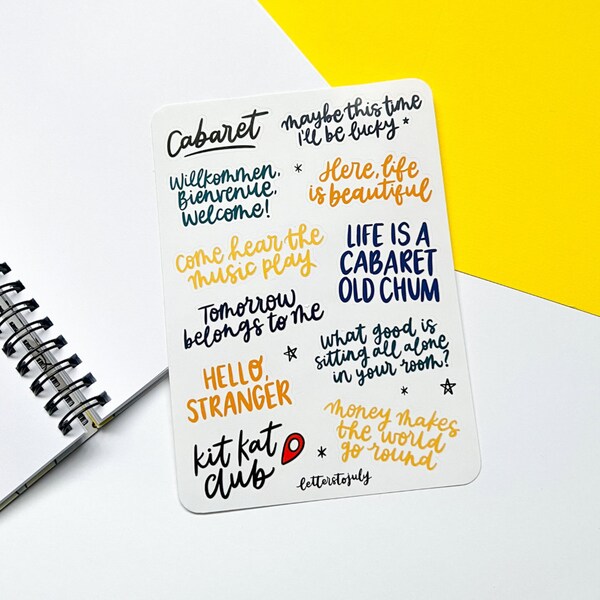 Cabaret
maybe this time
I'll be lucky
Willkommen,
Bienvenue,
Welcome!
Here, life
is beautiful
come hear the
music play
LIFE IS A
CABARET
OLD CHUM
Tomorrow
belongs to me
what good is
sitting all alone
in your room?
HELLO,
STRANGER
money makes
the world
go round
kit kat
club
letterstojuly